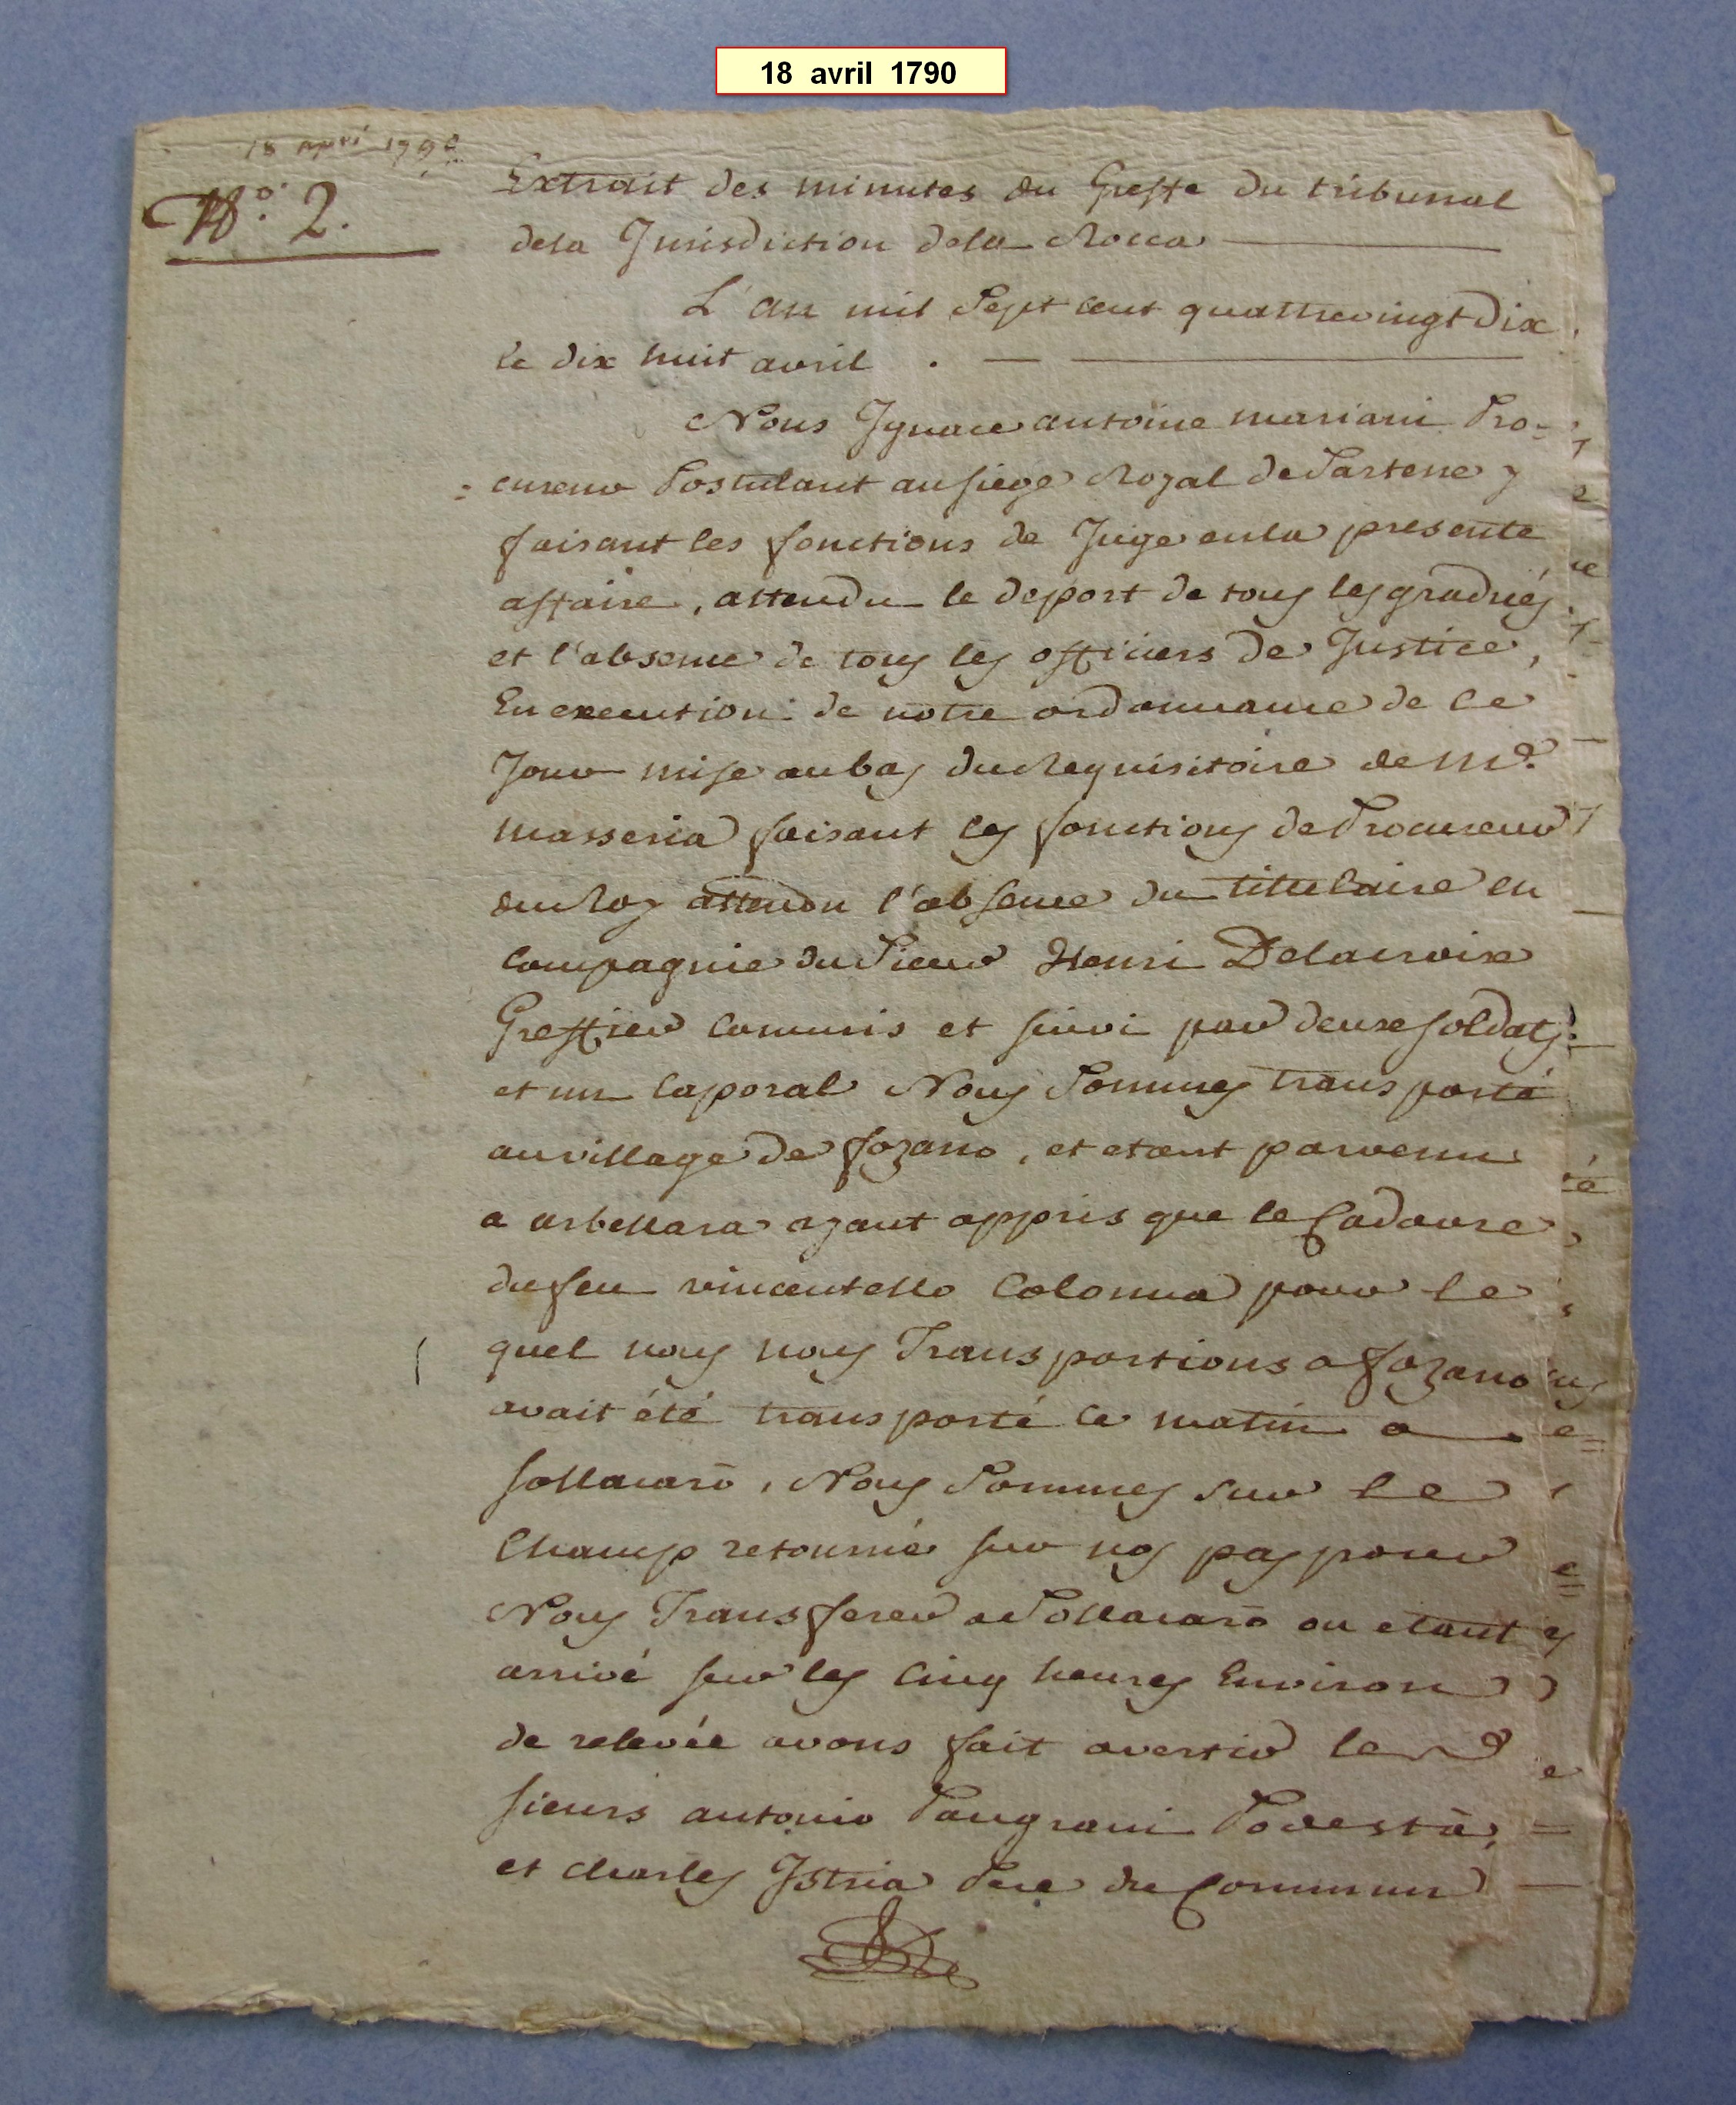 18 avril 1790
18 apri 1790
N.° 2.
Extrait des minutes du Greffe du tribunal
dela Jurisdiction dela Rocca
L'an mil Sept cent quattrevingt Dix
le dix huit avril .
Nous Ignace antoine mariani Pro-
=cureur Postulant au siege Royal de Sartene y
faisant les fonctions de Juge en la presente
affaire, attendu le deport de tous les gradués
et l'absence de tous les officiers de Justice,
En execution de notre ordonnance de ce
Jour mise au bas du Requisitoire de Mr.
masseria faisant les fonctions de Procureur
du Roy attendu l'absence du titulaire en
compagnie du Sieur Henri Delacroix
Greffier Commis et suivi par deux soldats
et un Caporal Nous Sommes transporté
au village de fozano, et etant parvenu
a arbellara ayant appris que le Cadavre
du feu vincentello Colonna pour le
quel nous nous Transportions a fozano
avait été transporté ce matin a
sollacaro, Nous Sommes sur le
Champ retourné sur nos pas pour
Nous Transferer a Sollacaro ou etant
arrivé sur les cinq heures Environ
de relevée avons fait avertir les
sieurs antonio Pangrani Podestà,
et charles Istria Pere du Commun